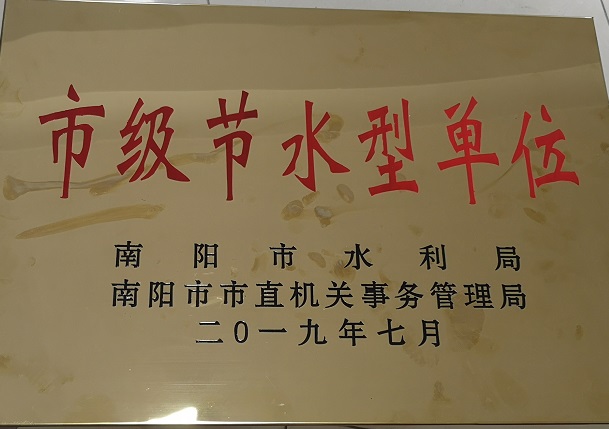 市级节水型单位
南阳市水利局
南阳市市直机关事务管理局
二0一九年七月